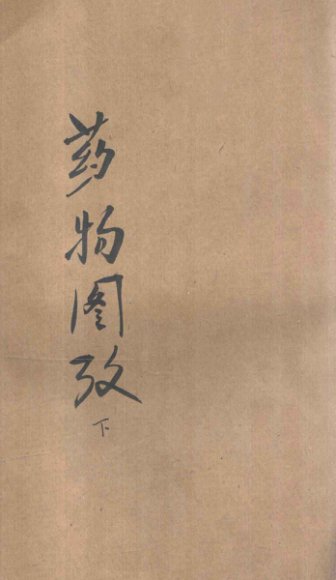 药物图攷
下